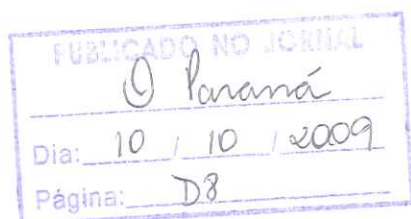 PUBLICADO NO JORNAL
O Paraná
Dia: 10 / 10 / 2009
Página: D8